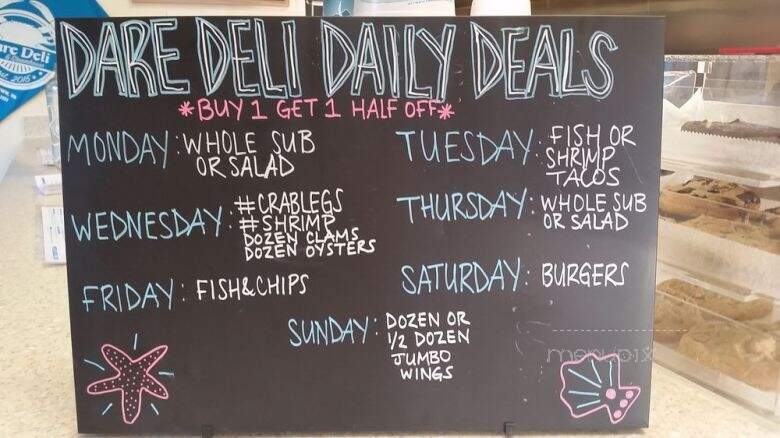 DARE DELI DAILY DEALS
*BUY 1 GET 1 HALF OFF*
MONDAY: WHOLE SUB
OR SALAD
TUESDAY: FISH OR
SHRIMP
TACOS
WEDNESDAY: #CRABLEGS
#SHRIMP
DOZEN CLAMS
DOZEN OYSTERS
THURSDAY: WHOLE SUB
OR SALAD
FRIDAY: FISH&CHIPS
SATURDAY: BURGERS
SUNDAY: DOZEN OR
1/2 DOZEN
JUMBO
WINGS
menupix
are Deli
2015